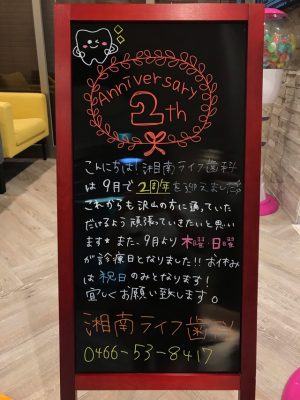 Anniversary
2th
こんにちは！湘南ライフ歯科
は9月で2周年を迎えました
これからも沢山の方に通っていた
だけるよう頑張っていきたいと思い
ます★また、9月より木曜・日曜
が診療日となりました!!お休み
は祝日のみとなります！
宜しくお願い致します。
湘南ライフ歯科
0466-53-8417